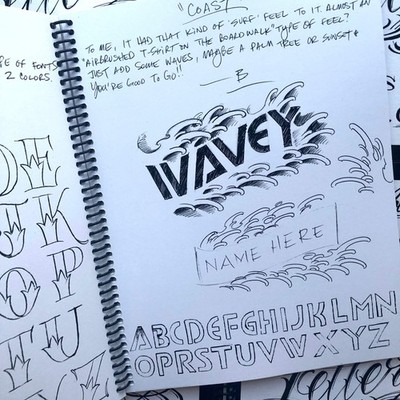 "COAST"
TO ME, IT HAD THAT KIND OF 'SURF' FEEL TO IT. ALMOST AN
"AIRBRUSHED T-SHIRT ON THE BOARDWALK" TYPE OF FEEL?
JUST ADD SOME WAVES, MAYBE A PALM TREE OR SUNSET &
YOU'RE GOOD TO GO!!
B
WAVEY
NAME HERE
ABCDEFGHIJKLMN
OPRSTUVWXYZ
PE OF FONTS
2 COLORS.
DE
JK
OP
TU
Z
Letter